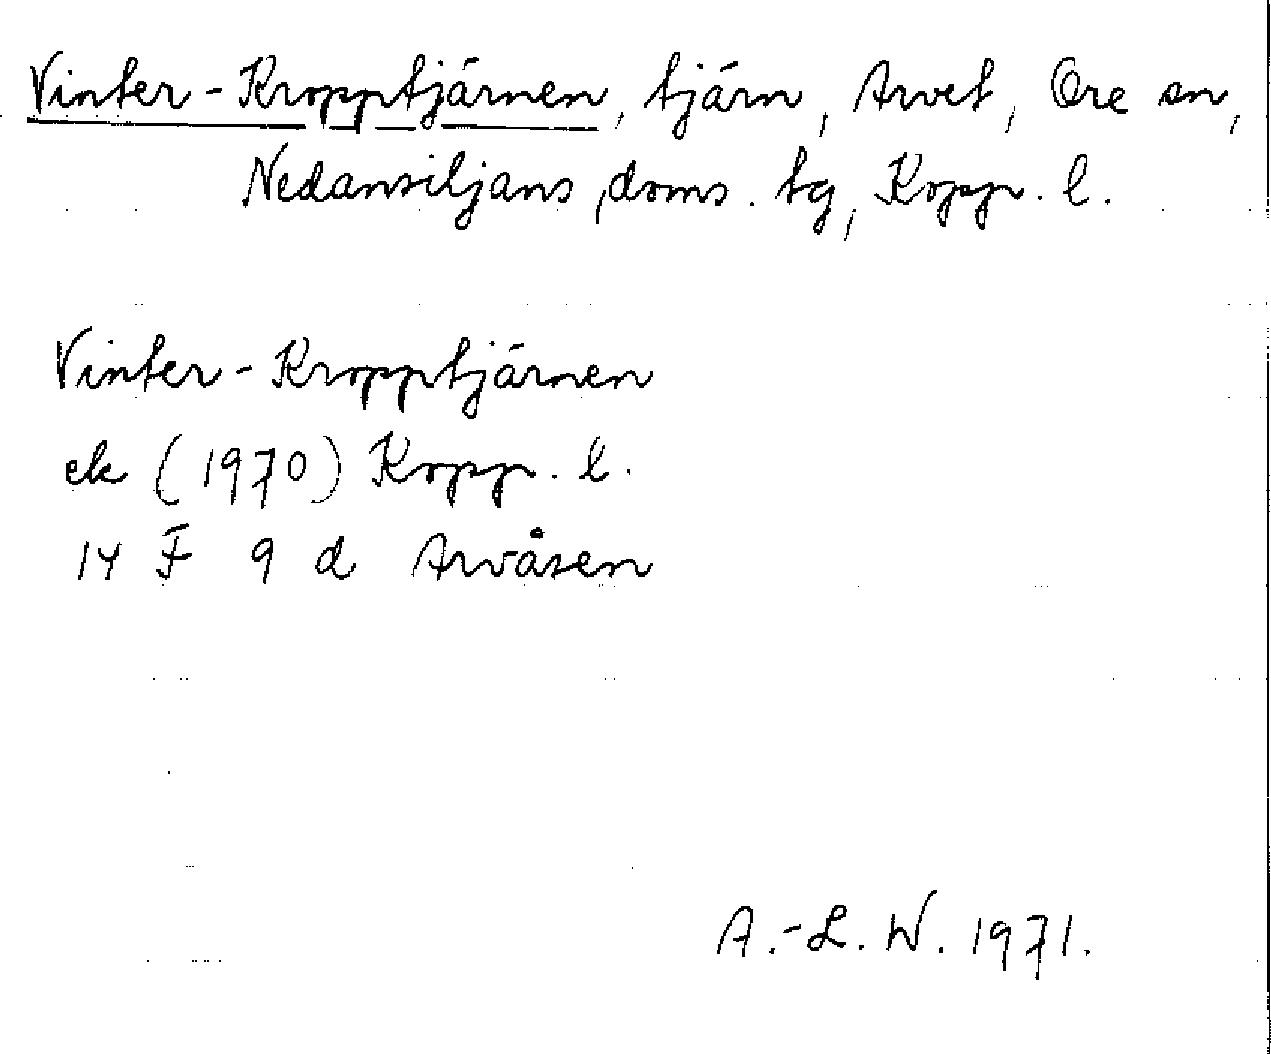 Vinter-Kropptjärnen, tjärn, Arvet, Ore sn,
Nedansiljans doms. tg, Kopp. l.
Vinter-Kropptjärnen
ek (1970) Kopp. l.
14 F 9 d Arvåsen
A.-L. W. 1971.